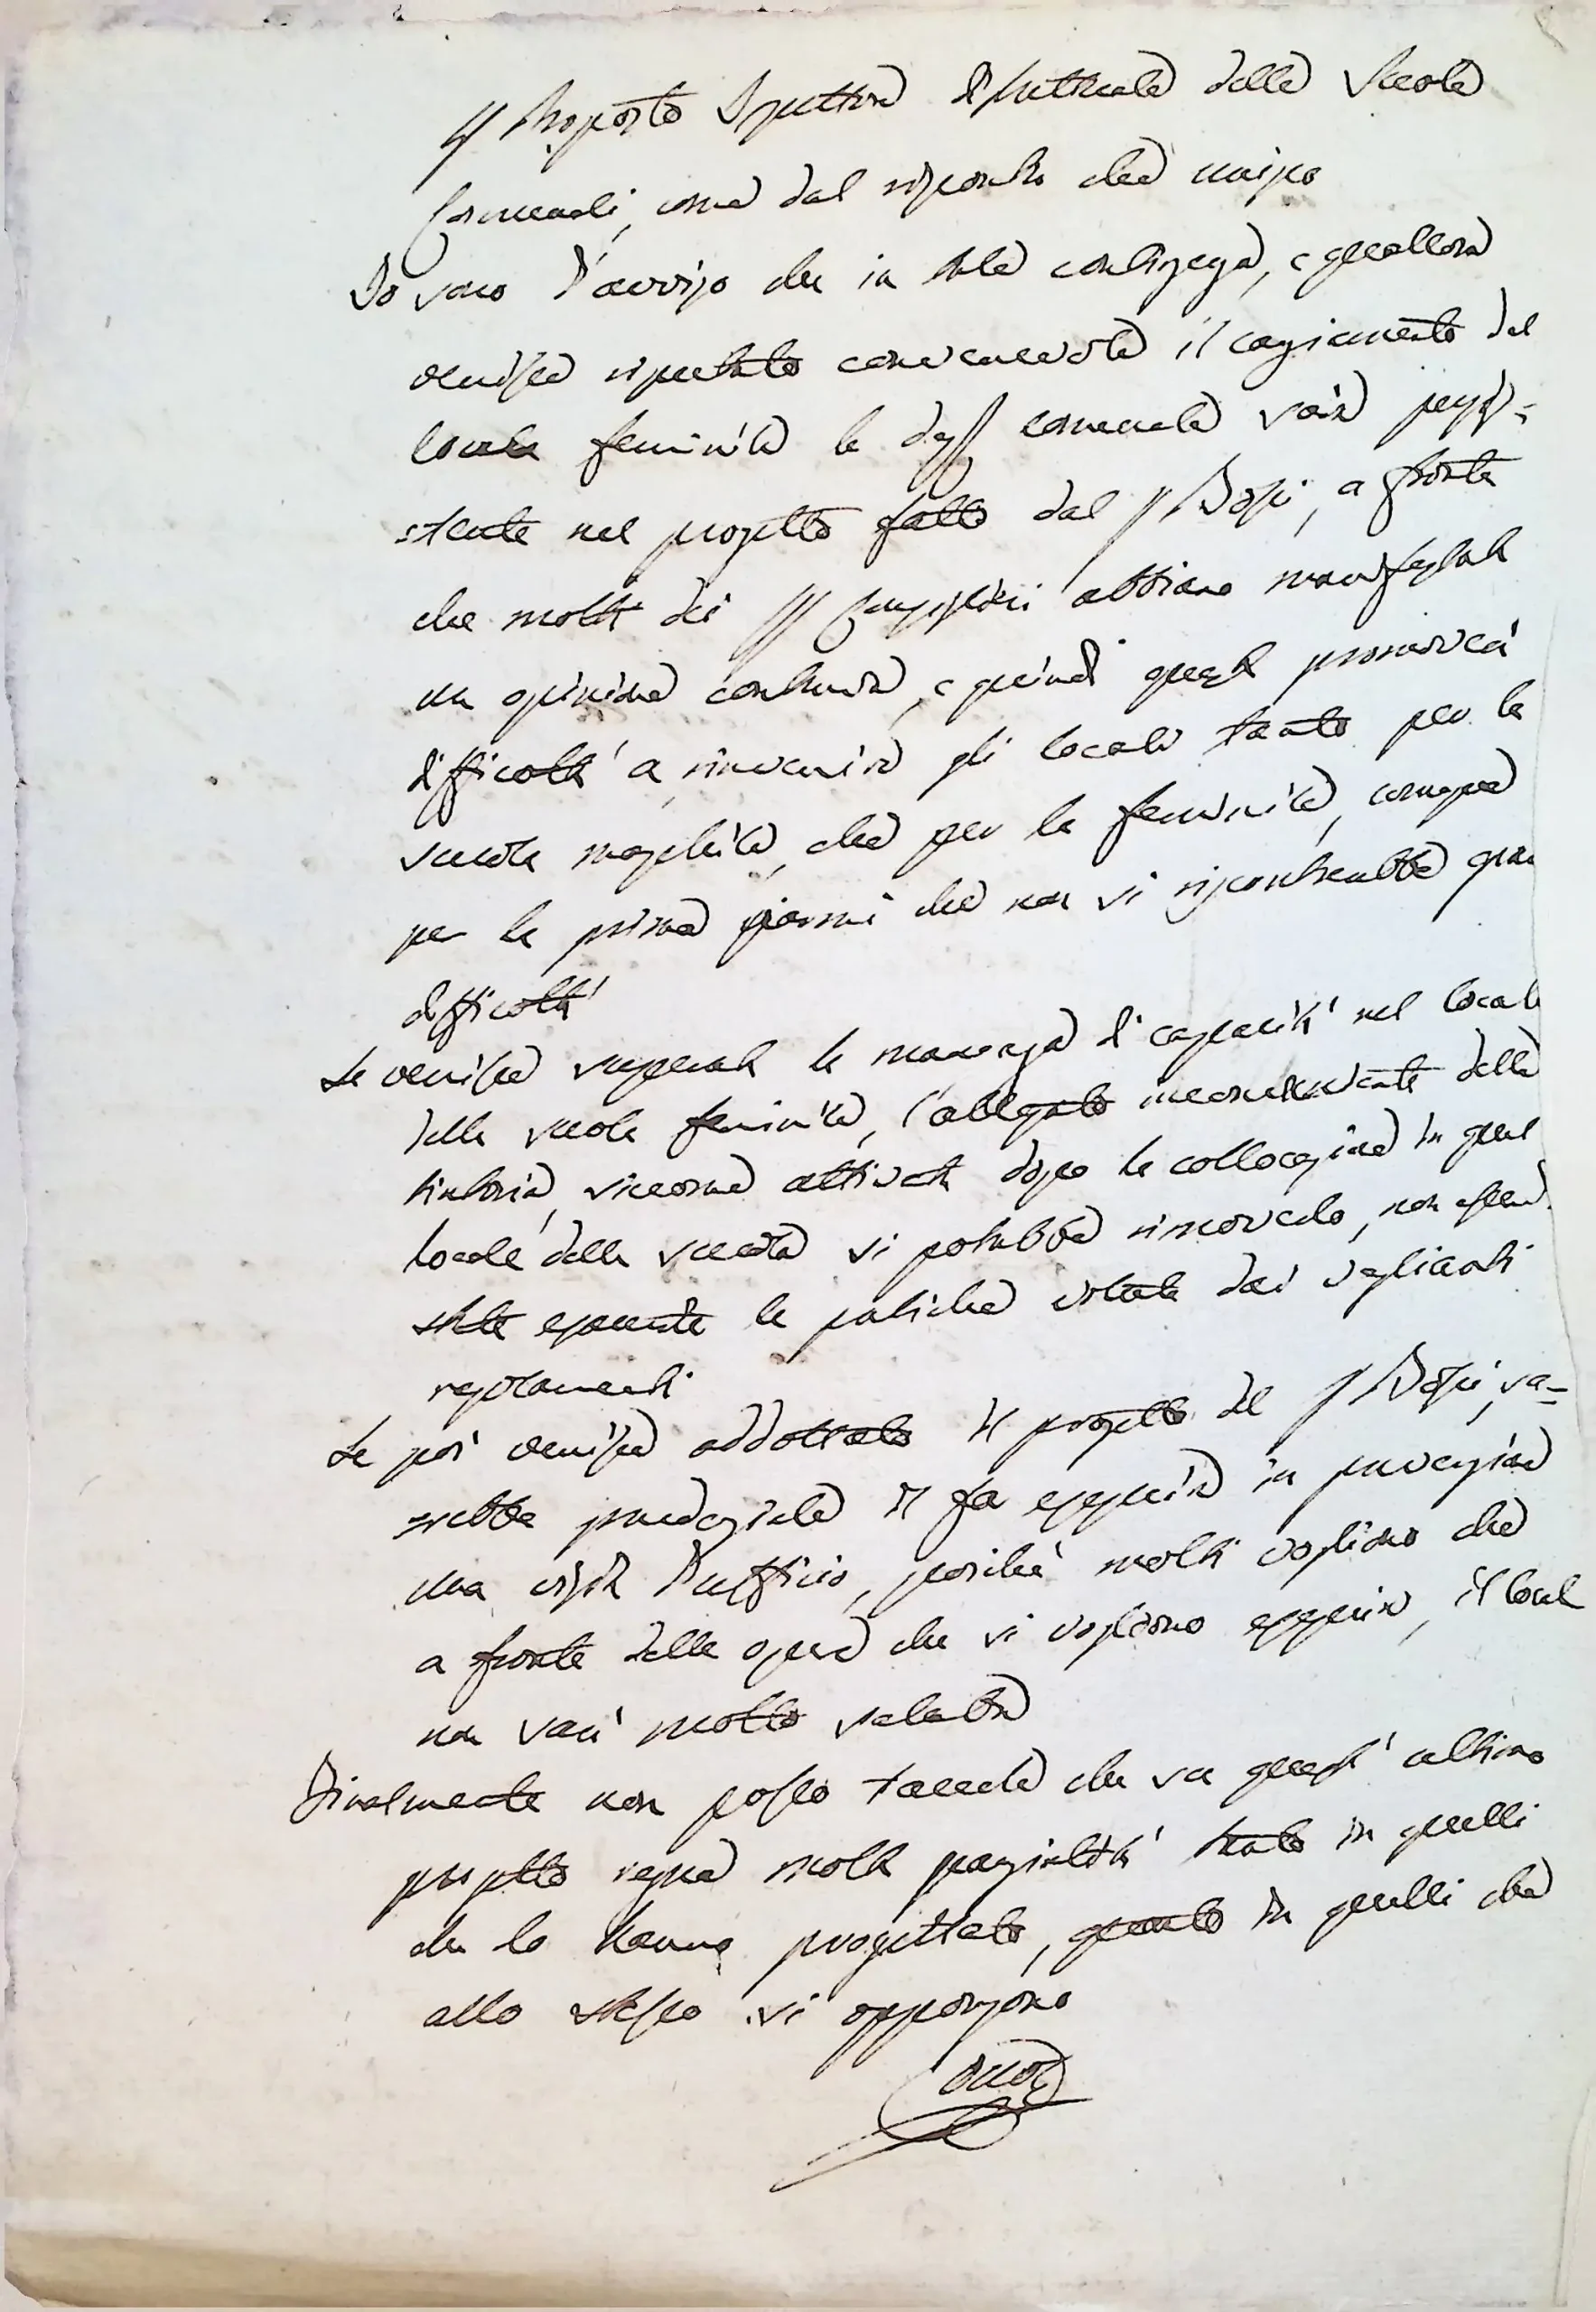 Proposto Ispettore distrettuale delle Scuole
Comunali, come dal riscontro che unisco
Io sono d'avviso che in tale contingenza, e quallora
venisse riputato conveniente il cangiamento del
locale feminile la comunale sarà persi-
stente nel progetto fatto dal S. Dossi, a fronte
che molti dei SS. Consiglieri abbiano manifestata
un opinione contraria, e quindi questa promoverà
difficoltà a rinvenire gli locali tanto per la
scuola maschile, che per la feminile, comeque
per la prima giorni che non vi riscontrerebbe gran
difficoltà
Se venisse superata la mancanza di capacità nel locale
della scuola feminile, l'allegato inconveniente della
tintoria, siccome attivata dopo la collocazione in quel
locale della scuola si potrebbe rimoverlo, non essendo
state eseguite le pratiche volute dai veglianti
regolamenti
Se poi venisse addottato il progetto del S. Dossi, sa-
rebbe prudenziale il far eseguire in prevenzione
una visita d'ufficio, poichè molti vogliono che
a fronte delle opere che si vogliono eseguire, il local
non sarà molto salubre
Finalmente non posso tacere che su quest'ultimo
progetto regna molta parzialità tanto in quelli
che lo hanno progettato, quanto in quelli che
allo stesso si oppongono